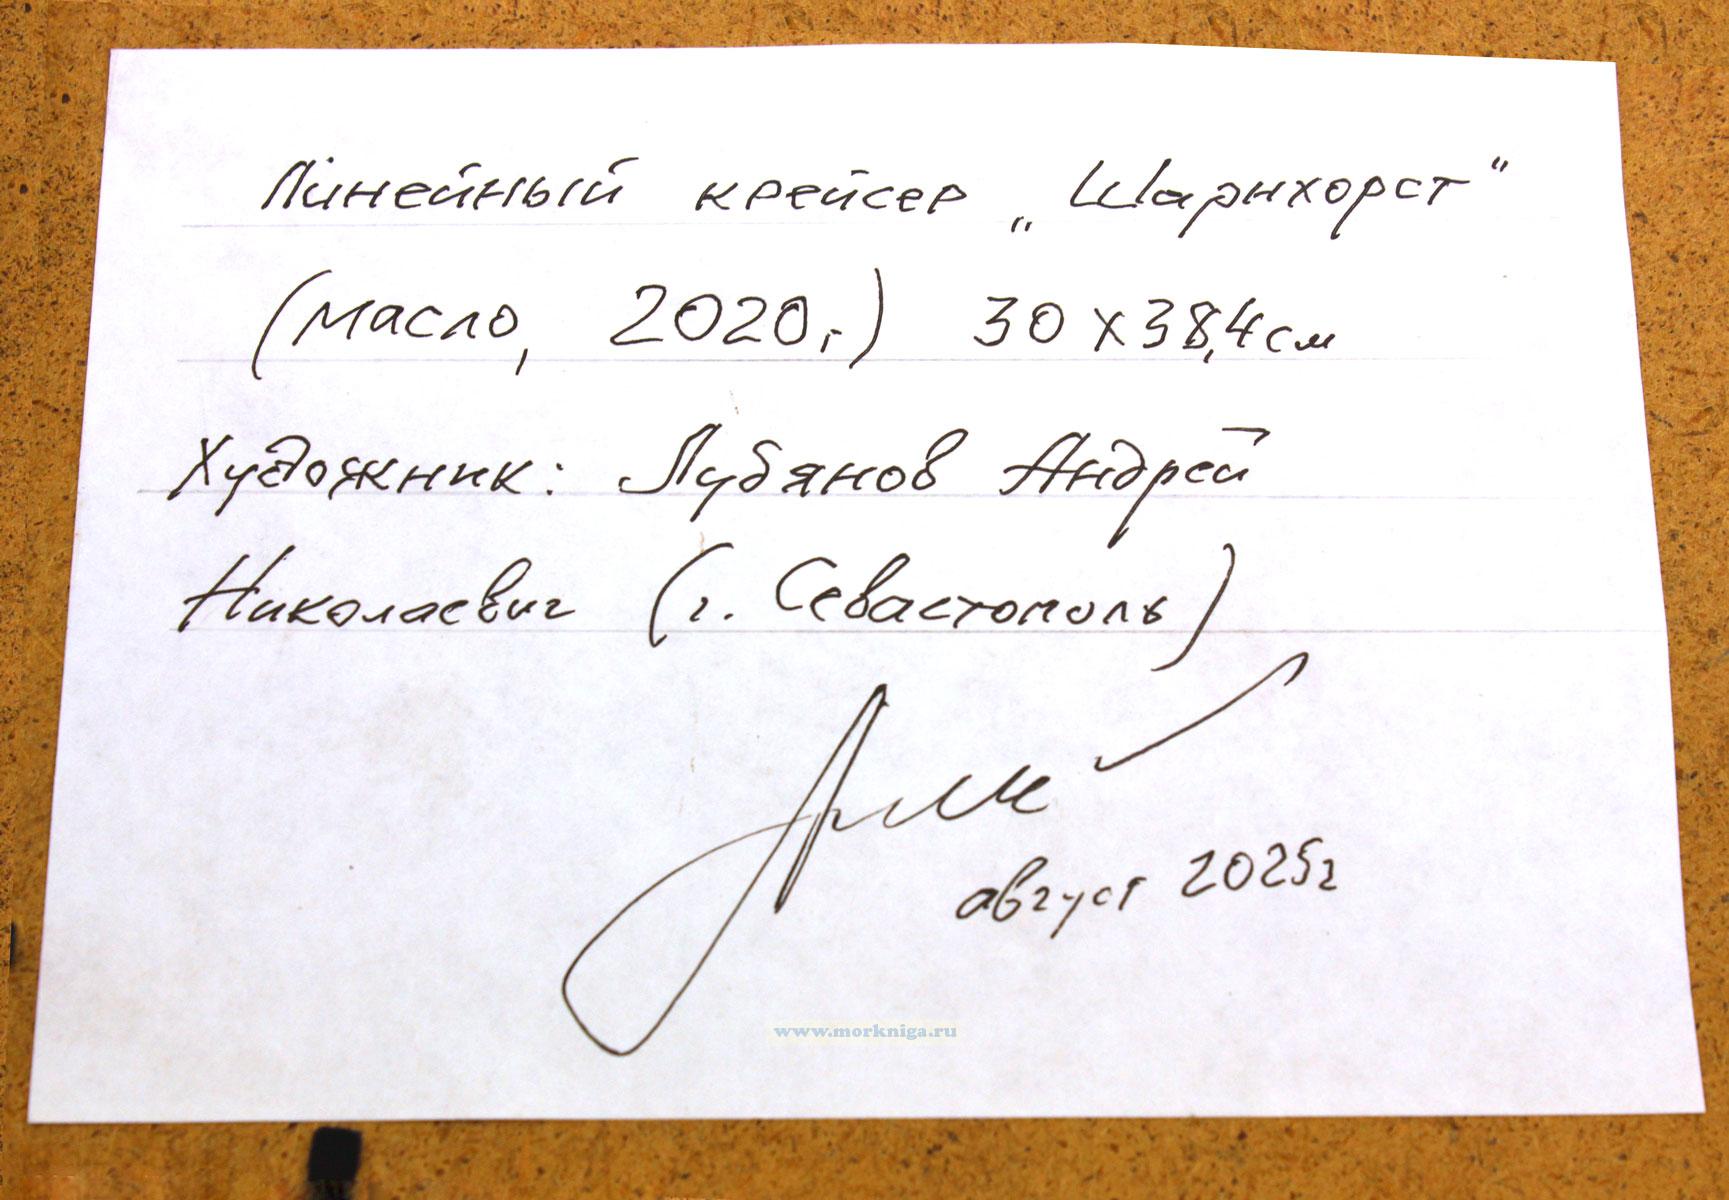 Линейный крейсер „Шарнхорст"
(масло, 2020г) 30х38,4см
Художник: Лубянов Андрей
Николаевич (г. Севастополь)
август 2025г
www.morkniga.ru